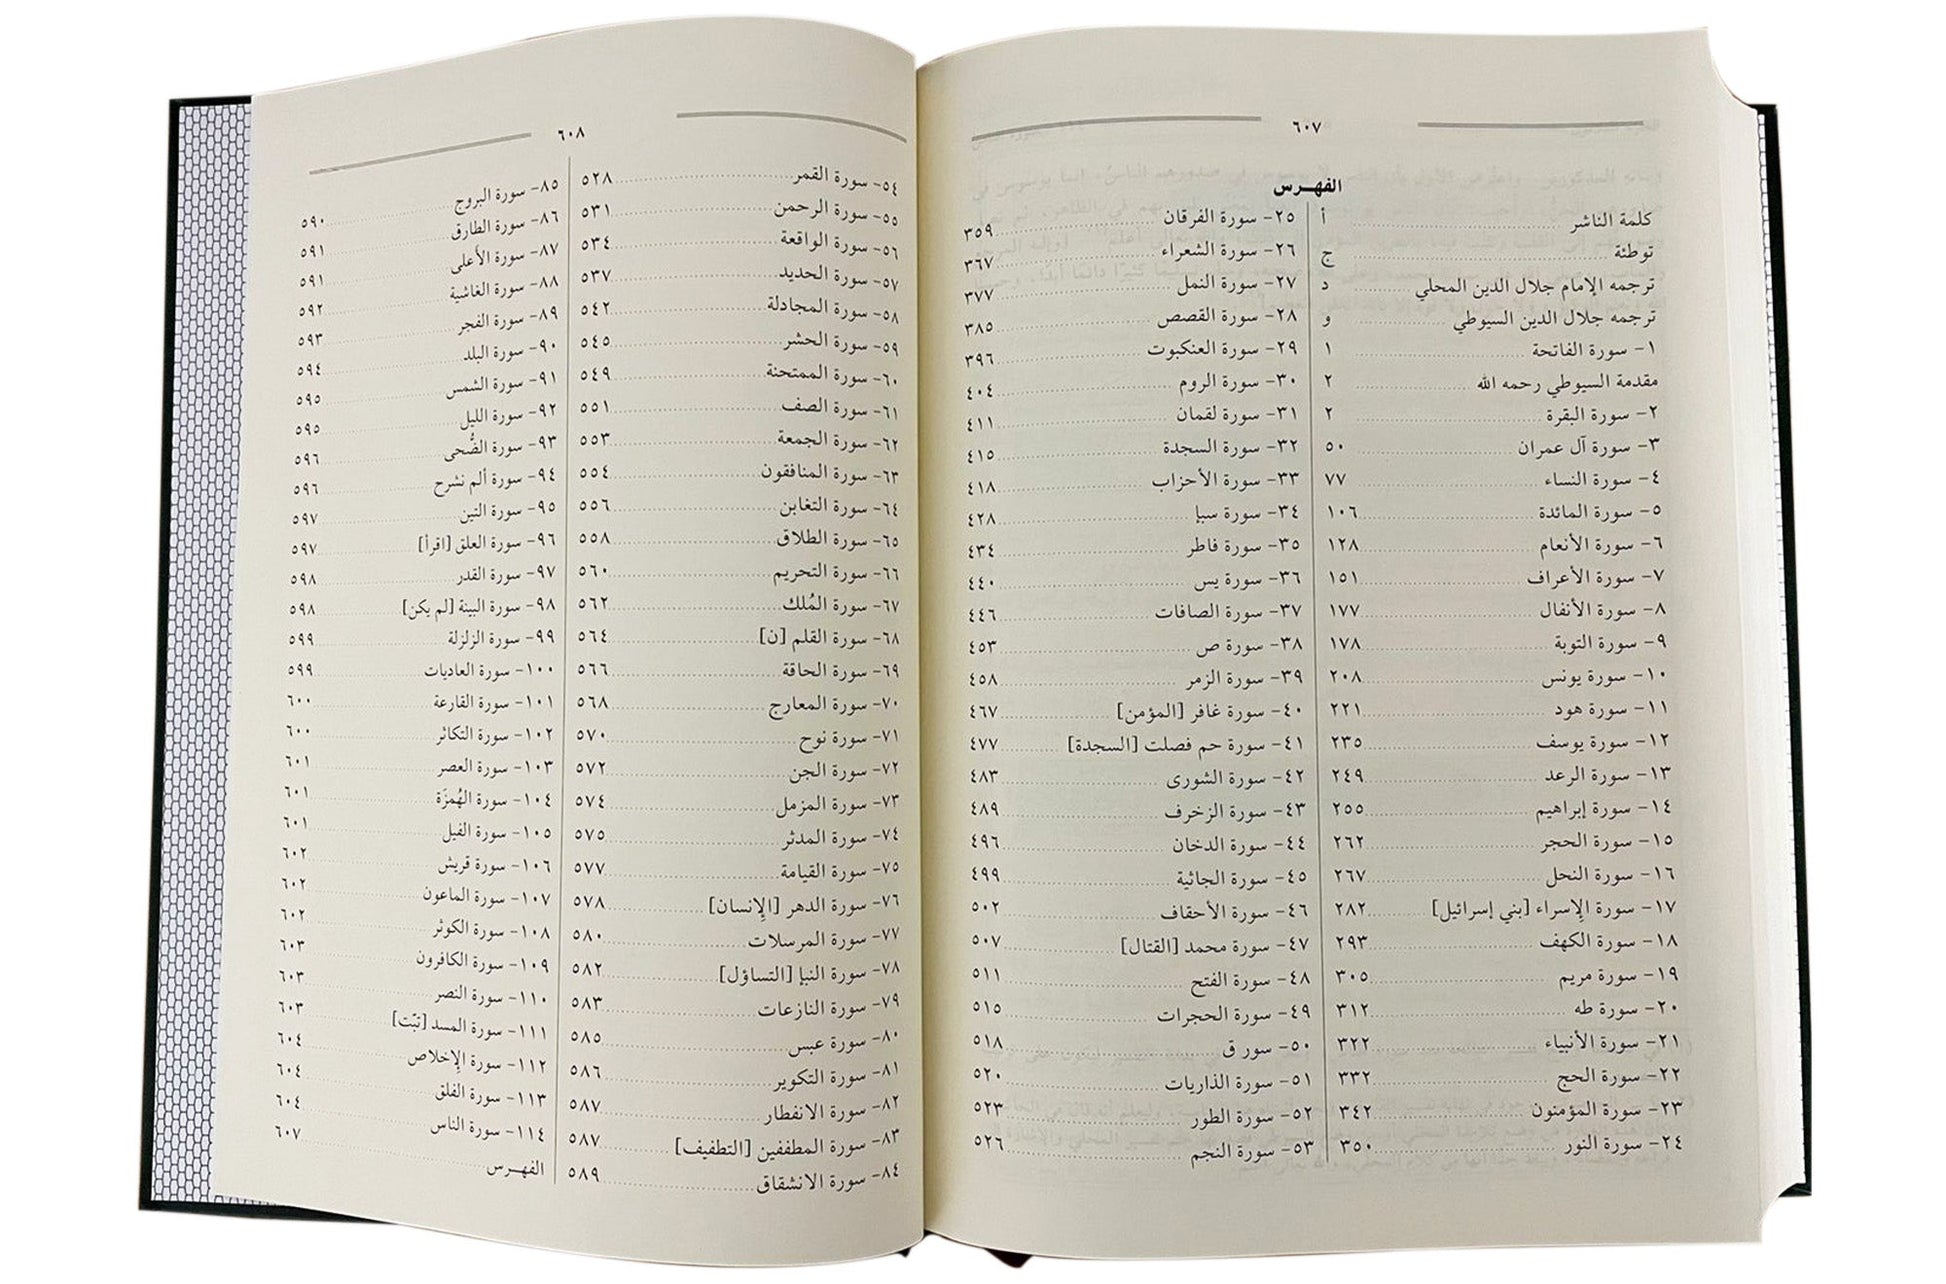 ٦٠٧
الفهـرس
كلمة الناشر ........ أ
توطئة ........ ج
ترجمه الإمام جلال الدين المحلي ........ د
ترجمه جلال الدين السيوطي ........ و
١- سورة الفاتحة ........ ١
مقدمة السيوطي رحمه الله ........ ٢
٢- سورة البقرة ........ ٢
٣- سورة آل عمران ........ ٥٠
٤- سورة النساء ........ ٧٧
٥- سورة المائدة ........ ١٠٦
٦- سورة الأنعام ........ ١٢٨
٧- سورة الأعراف ........ ١٥١
٨- سورة الأنفال ........ ١٧٧
٩- سورة التوبة ........ ١٧٨
١٠- سورة يونس ........ ٢٠٨
١١- سورة هود ........ ٢٢١
١٢- سورة يوسف ........ ٢٣٥
١٣- سورة الرعد ........ ٢٤٩
١٤- سورة إبراهيم ........ ٢٥٥
١٥- سورة الحجر ........ ٢٦٢
١٦- سورة النحل ........ ٢٦٧
١٧- سورة الإسراء [بني إسرائيل] ........ ٢٨٢
١٨- سورة الكهف ........ ٢٩٣
١٩- سورة مريم ........ ٣٠٥
٢٠- سورة طه ........ ٣١٢
٢١- سورة الأنبياء ........ ٣٢٢
٢٢- سورة الحج ........ ٣٣٢
٢٣- سورة المؤمنون ........ ٣٤٢
٢٤- سورة النور ........ ٣٥٠
٢٥- سورة الفرقان ........ ٣٥٩
٢٦- سورة الشعراء ........ ٣٦٧
٢٧- سورة النمل ........ ٣٧٧
٢٨- سورة القصص ........ ٣٨٥
٢٩- سورة العنكبوت ........ ٣٩٦
٣٠- سورة الروم ........ ٤٠٤
٣١- سورة لقمان ........ ٤١١
٣٢- سورة السجدة ........ ٤١٥
٣٣- سورة الأحزاب ........ ٤١٨
٣٤- سورة سبإ ........ ٤٢٨
٣٥- سورة فاطر ........ ٤٣٤
٣٦- سورة يس ........ ٤٤٠
٣٧- سورة الصافات ........ ٤٤٦
٣٨- سورة ص ........ ٤٥٣
٣٩- سورة الزمر ........ ٤٥٨
٤٠- سورة غافر [المؤمن] ........ ٤٦٧
٤١- سورة حم فصلت [السجدة] ........ ٤٧٧
٤٢- سورة الشورى ........ ٤٨٣
٤٣- سورة الزخرف ........ ٤٨٩
٤٤- سورة الدخان ........ ٤٩٦
٤٥- سورة الجاثية ........ ٤٩٩
٤٦- سورة الأحقاف ........ ٥٠٢
٤٧- سورة محمد [القتال] ........ ٥٠٧
٤٨- سورة الفتح ........ ٥١١
٤٩- سورة الحجرات ........ ٥١٥
٥٠- سور ق ........ ٥١٨
٥١- سورة الذاريات ........ ٥٢٠
٥٢- سورة الطور ........ ٥٢٣
٥٣- سورة النجم ........ ٥٢٦
٦٠٨
٥٤- سورة القمر ........ ٥٢٨
٥٥- سورة الرحمن ........ ٥٣١
٥٦- سورة الواقعة ........ ٥٣٤
٥٧- سورة الحديد ........ ٥٣٧
٥٨- سورة المجادلة ........ ٥٤٢
٥٩- سورة الحشر ........ ٥٤٥
٦٠- سورة الممتحنة ........ ٥٤٩
٦١- سورة الصف ........ ٥٥١
٦٢- سورة الجمعة ........ ٥٥٣
٦٣- سورة المنافقون ........ ٥٥٤
٦٤- سورة التغابن ........ ٥٥٦
٦٥- سورة الطلاق ........ ٥٥٨
٦٦- سورة التحريم ........ ٥٦٠
٦٧- سورة المُلك ........ ٥٦٢
٦٨- سورة القلم [ن] ........ ٥٦٤
٦٩- سورة الحاقة ........ ٥٦٦
٧٠- سورة المعارج ........ ٥٦٨
٧١- سورة نوح ........ ٥٧٠
٧٢- سورة الجن ........ ٥٧٢
٧٣- سورة المزمل ........ ٥٧٤
٧٤- سورة المدثر ........ ٥٧٥
٧٥- سورة القيامة ........ ٥٧٧
٧٦- سورة الدهر [الإنسان] ........ ٥٧٨
٧٧- سورة المرسلات ........ ٥٨٠
٧٨- سورة النبإ [التساؤل] ........ ٥٨٢
٧٩- سورة النازعات ........ ٥٨٣
٨٠- سورة عبس ........ ٥٨٥
٨١- سورة التكوير ........ ٥٨٦
٨٢- سورة الانفطار ........ ٥٨٧
٨٣- سورة المطففين [التطفيف] ........ ٥٨٧
٨٤- سورة الانشقاق ........ ٥٨٩
٨٥- سورة البروج ........ ٥٩٠
٨٦- سورة الطارق ........ ٥٩١
٨٧- سورة الأعلى ........ ٥٩١
٨٨- سورة الغاشية ........ ٥٩٢
٨٩- سورة الفجر ........ ٥٩٣
٩٠- سورة البلد ........ ٥٩٤
٩١- سورة الشمس ........ ٥٩٥
٩٢- سورة الليل ........ ٥٩٥
٩٣- سورة الضُّحى ........ ٥٩٦
٩٤- سورة ألم نشرح ........ ٥٩٦
٩٥- سورة التين ........ ٥٩٧
٩٦- سورة العلق [اقرأ] ........ ٥٩٧
٩٧- سورة القدر ........ ٥٩٨
٩٨- سورة البينة [لم يكن] ........ ٥٩٨
٩٩- سورة الزلزلة ........ ٥٩٩
١٠٠- سورة العاديات ........ ٥٩٩
١٠١- سورة القارعة ........ ٦٠٠
١٠٢- سورة التكاثر ........ ٦٠٠
١٠٣- سورة العصر ........ ٦٠١
١٠٤- سورة الهُمزَة ........ ٦٠١
١٠٥- سورة الفيل ........ ٦٠١
١٠٦- سورة قريش ........ ٦٠٢
١٠٧- سورة الماعون ........ ٦٠٢
١٠٨- سورة الكوثر ........ ٦٠٢
١٠٩- سورة الكافرون ........ ٦٠٣
١١٠- سورة النصر ........ ٦٠٣
١١١- سورة المسد [تبّت] ........ ٦٠٣
١١٢- سورة الإخلاص ........ ٦٠٤
١١٣- سورة الفلق ........ ٦٠٤
١١٤- سورة الناس ........ ٦٠٤
الفهـرس ........ ٦٠٧